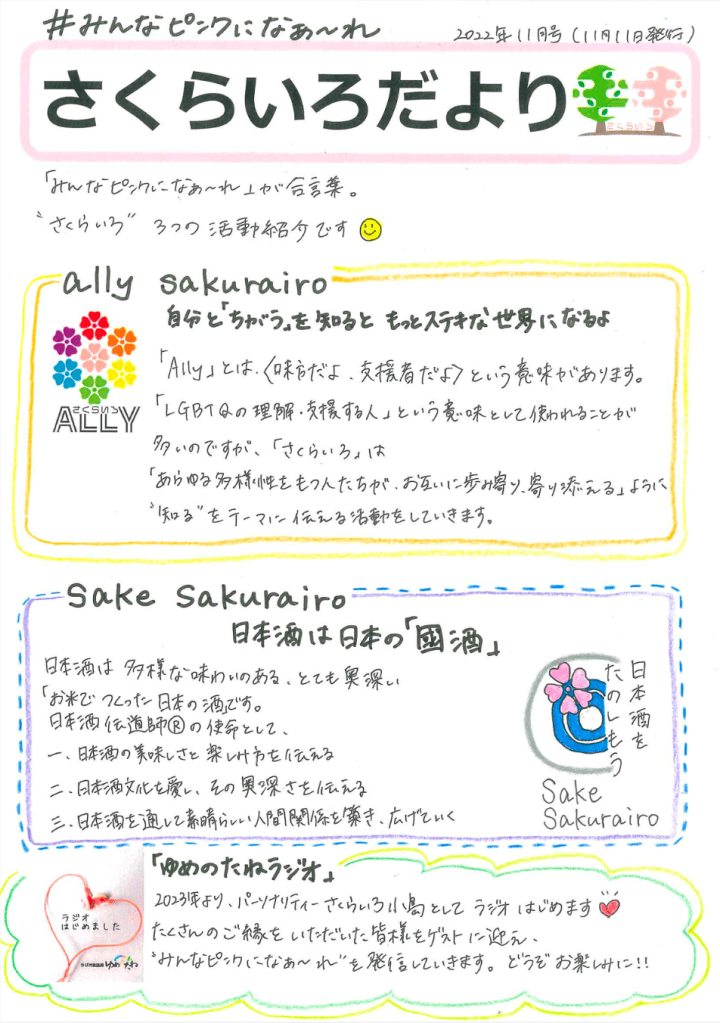 #みんなピンクになぁ〜れ
2022年11月号(11月11日発行)
さくらいろだより
さくらいろ
「みんなピンクになぁ〜れ」が合言葉。
“さくらいろ” 3つの活動紹介です
ally sakurairo
自分と「ちがう」を知ると もっとステキな世界になるよ
さくらいろ
ALLY
「Ally」とは、〈味方だよ、支援者だよ〉という意味があります。
「LGBTQの理解・支援する人」という意味として使われることが
多いのですが、「さくらいろ」は
「あらゆる多様性をもつ人たちが、お互いに歩み寄り、寄り添える」ように
“知る”をテーマに伝える活動をしていきます。
Sake Sakurairo
日本酒は日本の「國酒」
日本酒は 多様な味わいのある、とても奥深い
「お米で つくった 日本の酒」です。
日本酒伝道師®の使命として、
一、日本酒の美味しさと楽しみ方を伝える
二、日本酒文化を愛し、その奥深さを伝える
三、日本酒を通して素晴らしい人間関係を築き、広げていく
日本酒を
たのしもう
Sake
Sakurairo
「ゆめのたねラジオ」
ラジオ
はじめました
ゆめのたね
2023年より、パーソナリティー さくらいろ小島として ラジオ はじめます
たくさんの ご縁を いただいた 皆様をゲストに迎え、
“みんなピンクになぁ〜れ”を発信していきます。どうぞ お楽しみに!!